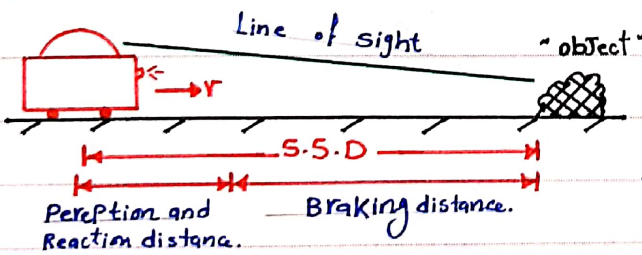 Line of sight
"object"
r
S.S.D
Pereption and
Reaction distance.
Braking distance.